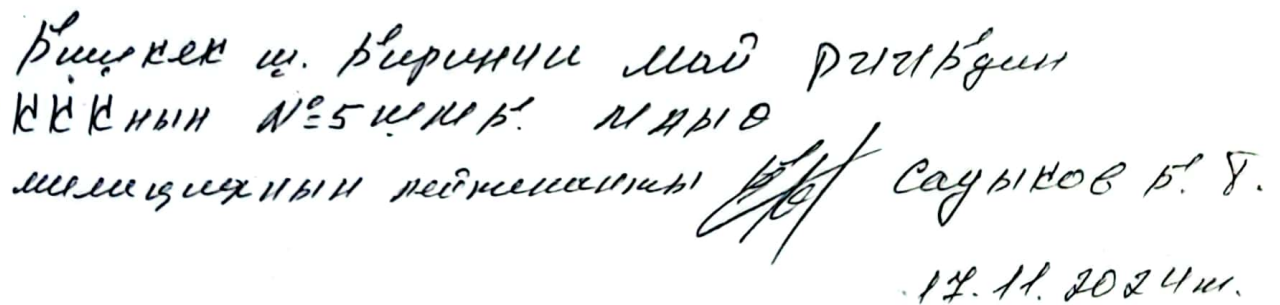 Бишкек ш. Биринчи май РИИБдин
ККК нын №5 ШМБ. МАЫО
милициянын лейтенанты Садыков Б. Т.
17.11.2024ж.